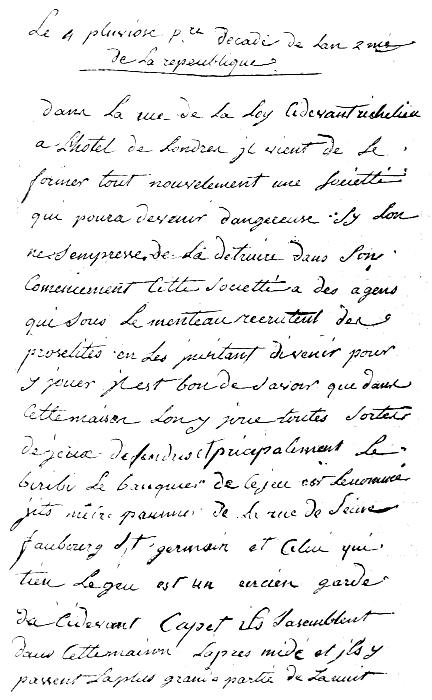 Le 4 pluviose pre decade de Lan 2 me
de La republique
dans La rue de La Loy Cidevant richelieu
a Lhotel de Londres jl vient de se
former tout nouvelement une societté
qui poura devenir dangereuse sy Lon
ne sempresse de La detruire dans son
Commencement Cette societté a des agens
qui sous Le menteau recrutent des
proselites en Les jnvitant di venir pour
y jouer jl est bon de savoir que dans
Cette maison Lon y joue toutes sortes
de jeux defendres et pricipalement Le
biribi Le banquier de Ce jeu est Le nommé
paumier de La rue de Seine
faubourg St germain et Celui qui
tien Le jeu est un encien garde
du Cidevant Capet ils sasemblent
dans Cette maison Lapres midé et jls y
passent La plus grande partie de La nuit